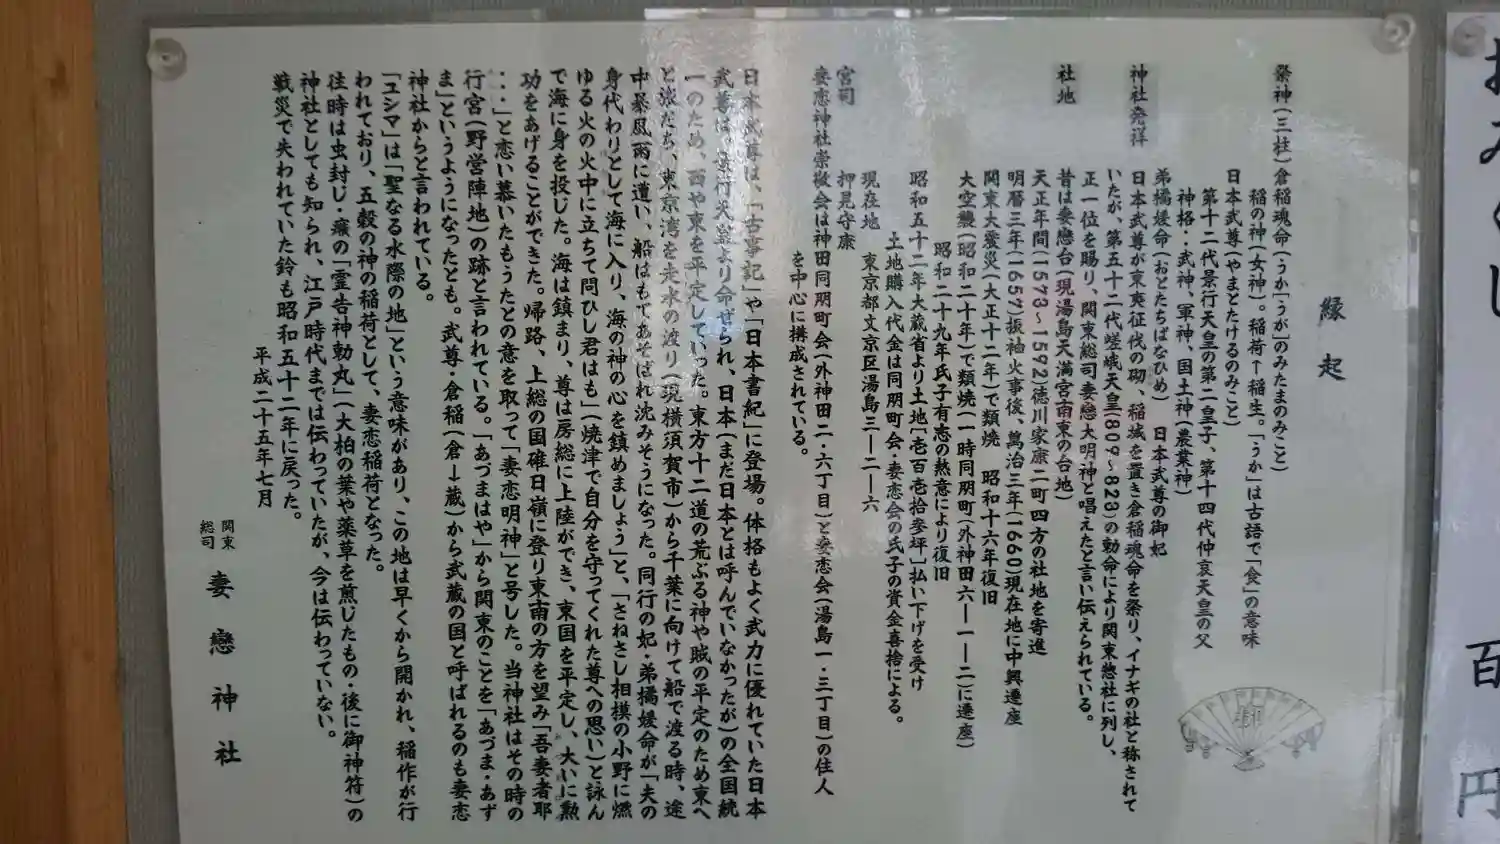 縁起
祭神(三柱)倉稲魂命(うか「うが」のみたまのみこと)
稲の神(女神)。稲荷↑稲生。「うか」は古語で「食」の意味
日本武尊(やまとたけるのみこと)
第十二代景行天皇の第二皇子、第十四代仲哀天皇の父
神格：武神、軍神、国土神(農業神)
弟橘媛命(おとたちばなひめ) 日本武尊の御妃
神社発祥 日本武尊が東夷征伐の砌、稲城を置き倉稲魂命を祭り、イナギの社と称されて
いたが、第五十二代嵯峨天皇(809~823)の勅命により関東惣社に列し、
正一位を賜り、関東総司妻戀大明神と唱えたと言い伝えられている。
社地 昔は妻戀台(現湯島天満宮南東の台地)
天正年間(1573~1592)徳川家康二町四方の社地を寄進
明暦三年(1657)振袖火事後、萬治三年(1660)現在地に中興遷座
関東大震災(大正十二年)で類焼 昭和十六年復旧
大空襲(昭和二十年)で類焼(一時同朋町(外神田六ー一ー二)に遷座)
昭和二十九年氏子有志の熱意により復旧
昭和五十二年大蔵省より土地[壱百壱拾参坪]払い下げを受け
土地購入代金は同朋町会・妻恋会の氏子の資金喜捨による。
現在地 東京都文京区湯島三ー二ー六
宮司 押見守康
妻恋神社崇敬会は神田同朋町会(外神田二・六丁目)と妻恋会(湯島一・三丁目)の住人
を中心に構成されている。
日本武尊は、「古事記」や「日本書紀」に登場。体格もよく武力に優れていた日本
武尊は、景行天皇より命ぜられ、日本(まだ日本とは呼んでいなかったが)の全国統
一のため、西や東を平定していった。東方十二道の荒ぶる神や賊の平定のため東へ
と旅だち、東京湾を走水の渡り(現横須賀市)から千葉に向けて船で渡る時、途
中暴風雨に遭い、船はもてあそばれ沈みそうになった。同行の妃・弟橘媛命が「夫の
身代わりとして海に入り、海の神の心を鎮めましょう」と、「さねさし相模の小野に燃
ゆる火の火中に立ちて問ひし君はも」(焼津で自分を守ってくれた尊への思い)と詠ん
で海に身を投じた。海は鎮まり、尊は房総に上陸ができ、東国を平定し、大いに勲
功をあげることができた。帰路、上総の国碓日嶺に登り東南の方を望み「吾妻者耶
・・・」と恋い慕いたもうたとの意を取って「妻恋明神」と号した。当神社はその時の
行宮(野営陣地)の跡と言われている。「あづまはや」から関東のことを「あづま・あず
ま」というようになったとも。武尊・倉稲(倉→蔵)から武蔵の国と呼ばれるのも妻恋
神社からと言われている。
「ユシマ」は「聖なる水際の地」という意味があり、この地は早くから開かれ、稲作が行
われており、五穀の神の稲荷として、妻恋稲荷となった。
往時は虫封じ・癪の「霊告神勅丸」(大柏の葉や薬草を煎じたもの・後に御神符)の
神社としても知られ、江戸時代までは伝わっていたが、今は伝わっていない。
戦災で失われていた鈴も昭和五十二年に戻った。
平成二十五年七月
関東
総司 妻戀神社
百円